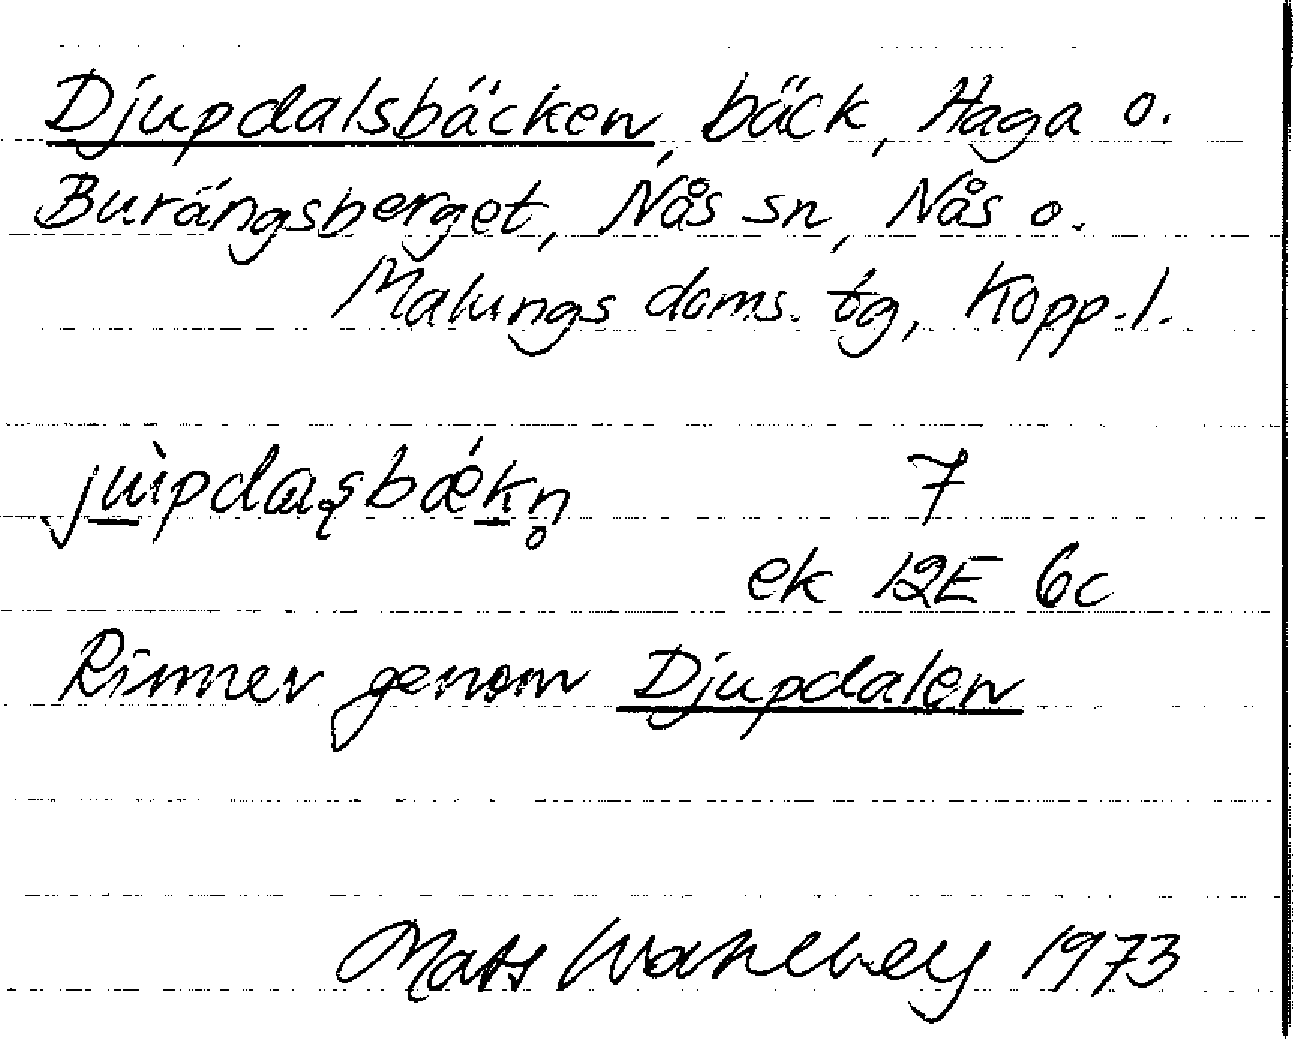 Djupdalsbäcken, bäck, Haga o.
Burängsberget, Nås sn, Nås o.
Malungs doms. tg, Kopp.l.
7
ek 12E 6c
Rinner genom Djupdalen
Mats Wahlberg 1973